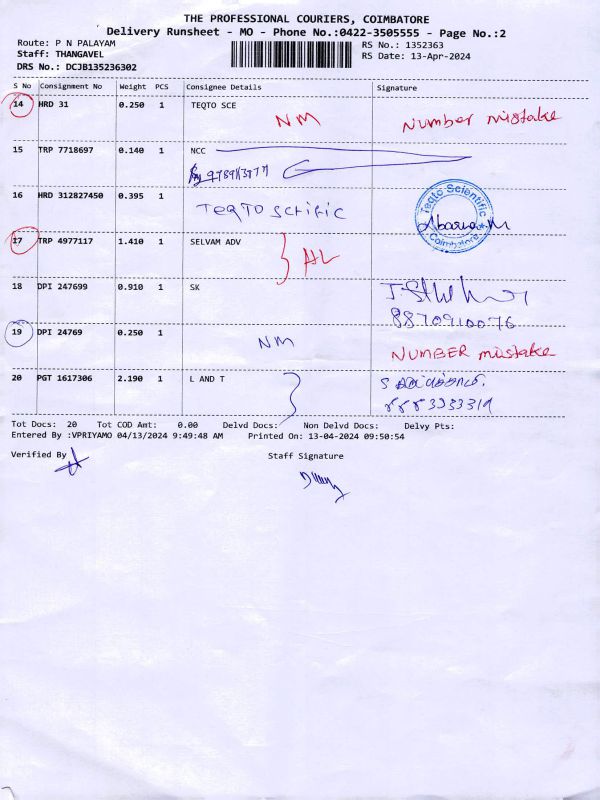 THE PROFESSIONAL COURIERS, COIMBATORE
Delivery Runsheet - MO - Phone No.:0422-3505555 - Page No.:2
Route: P N PALAYAM RS No.: 1352363
Staff: THANGAVEL RS Date: 13-Apr-2024
DRS No.: DCJB135236302
S No Consignment No Weight PCS Consignee Details Signature
14 HRD 31 0.250 1 TEQTO SCE
NM Number mistake
15 TRP 7718697 0.140 1 NCC
16 HRD 312827450 0.395 1
TEQTO Scrific
Teqto Scientific
Coimbatore
17 TRP 4977117 1.410 1 SELVAM ADV
AL
18 DPI 247699 0.910 1 SK
8870910076
19 DPI 24769 0.250 1
NM NUMBER mistake
20 PGT 1617306 2.190 1 L AND T
Tot Docs: 20 Tot COD Amt: 0.00 Delvd Docs: Non Delvd Docs: Delvy Pts:
Entered By :VPRIYAMO 04/13/2024 9:49:48 AM Printed On: 13-04-2024 09:50:54
Verified By Staff Signature